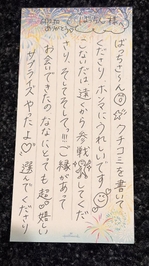 はなな
ありがとう
ばっち様
ばっちさ〜ん クチコミを書いて
くださり ホンマにうれしいです
こないだは 遠くから参戦してくだ
さり、そしてそしてっ!!!ご縁があって
お会いできたの なな にとっても超嬉しい
サプライズやったよ♡ 選んでくださり